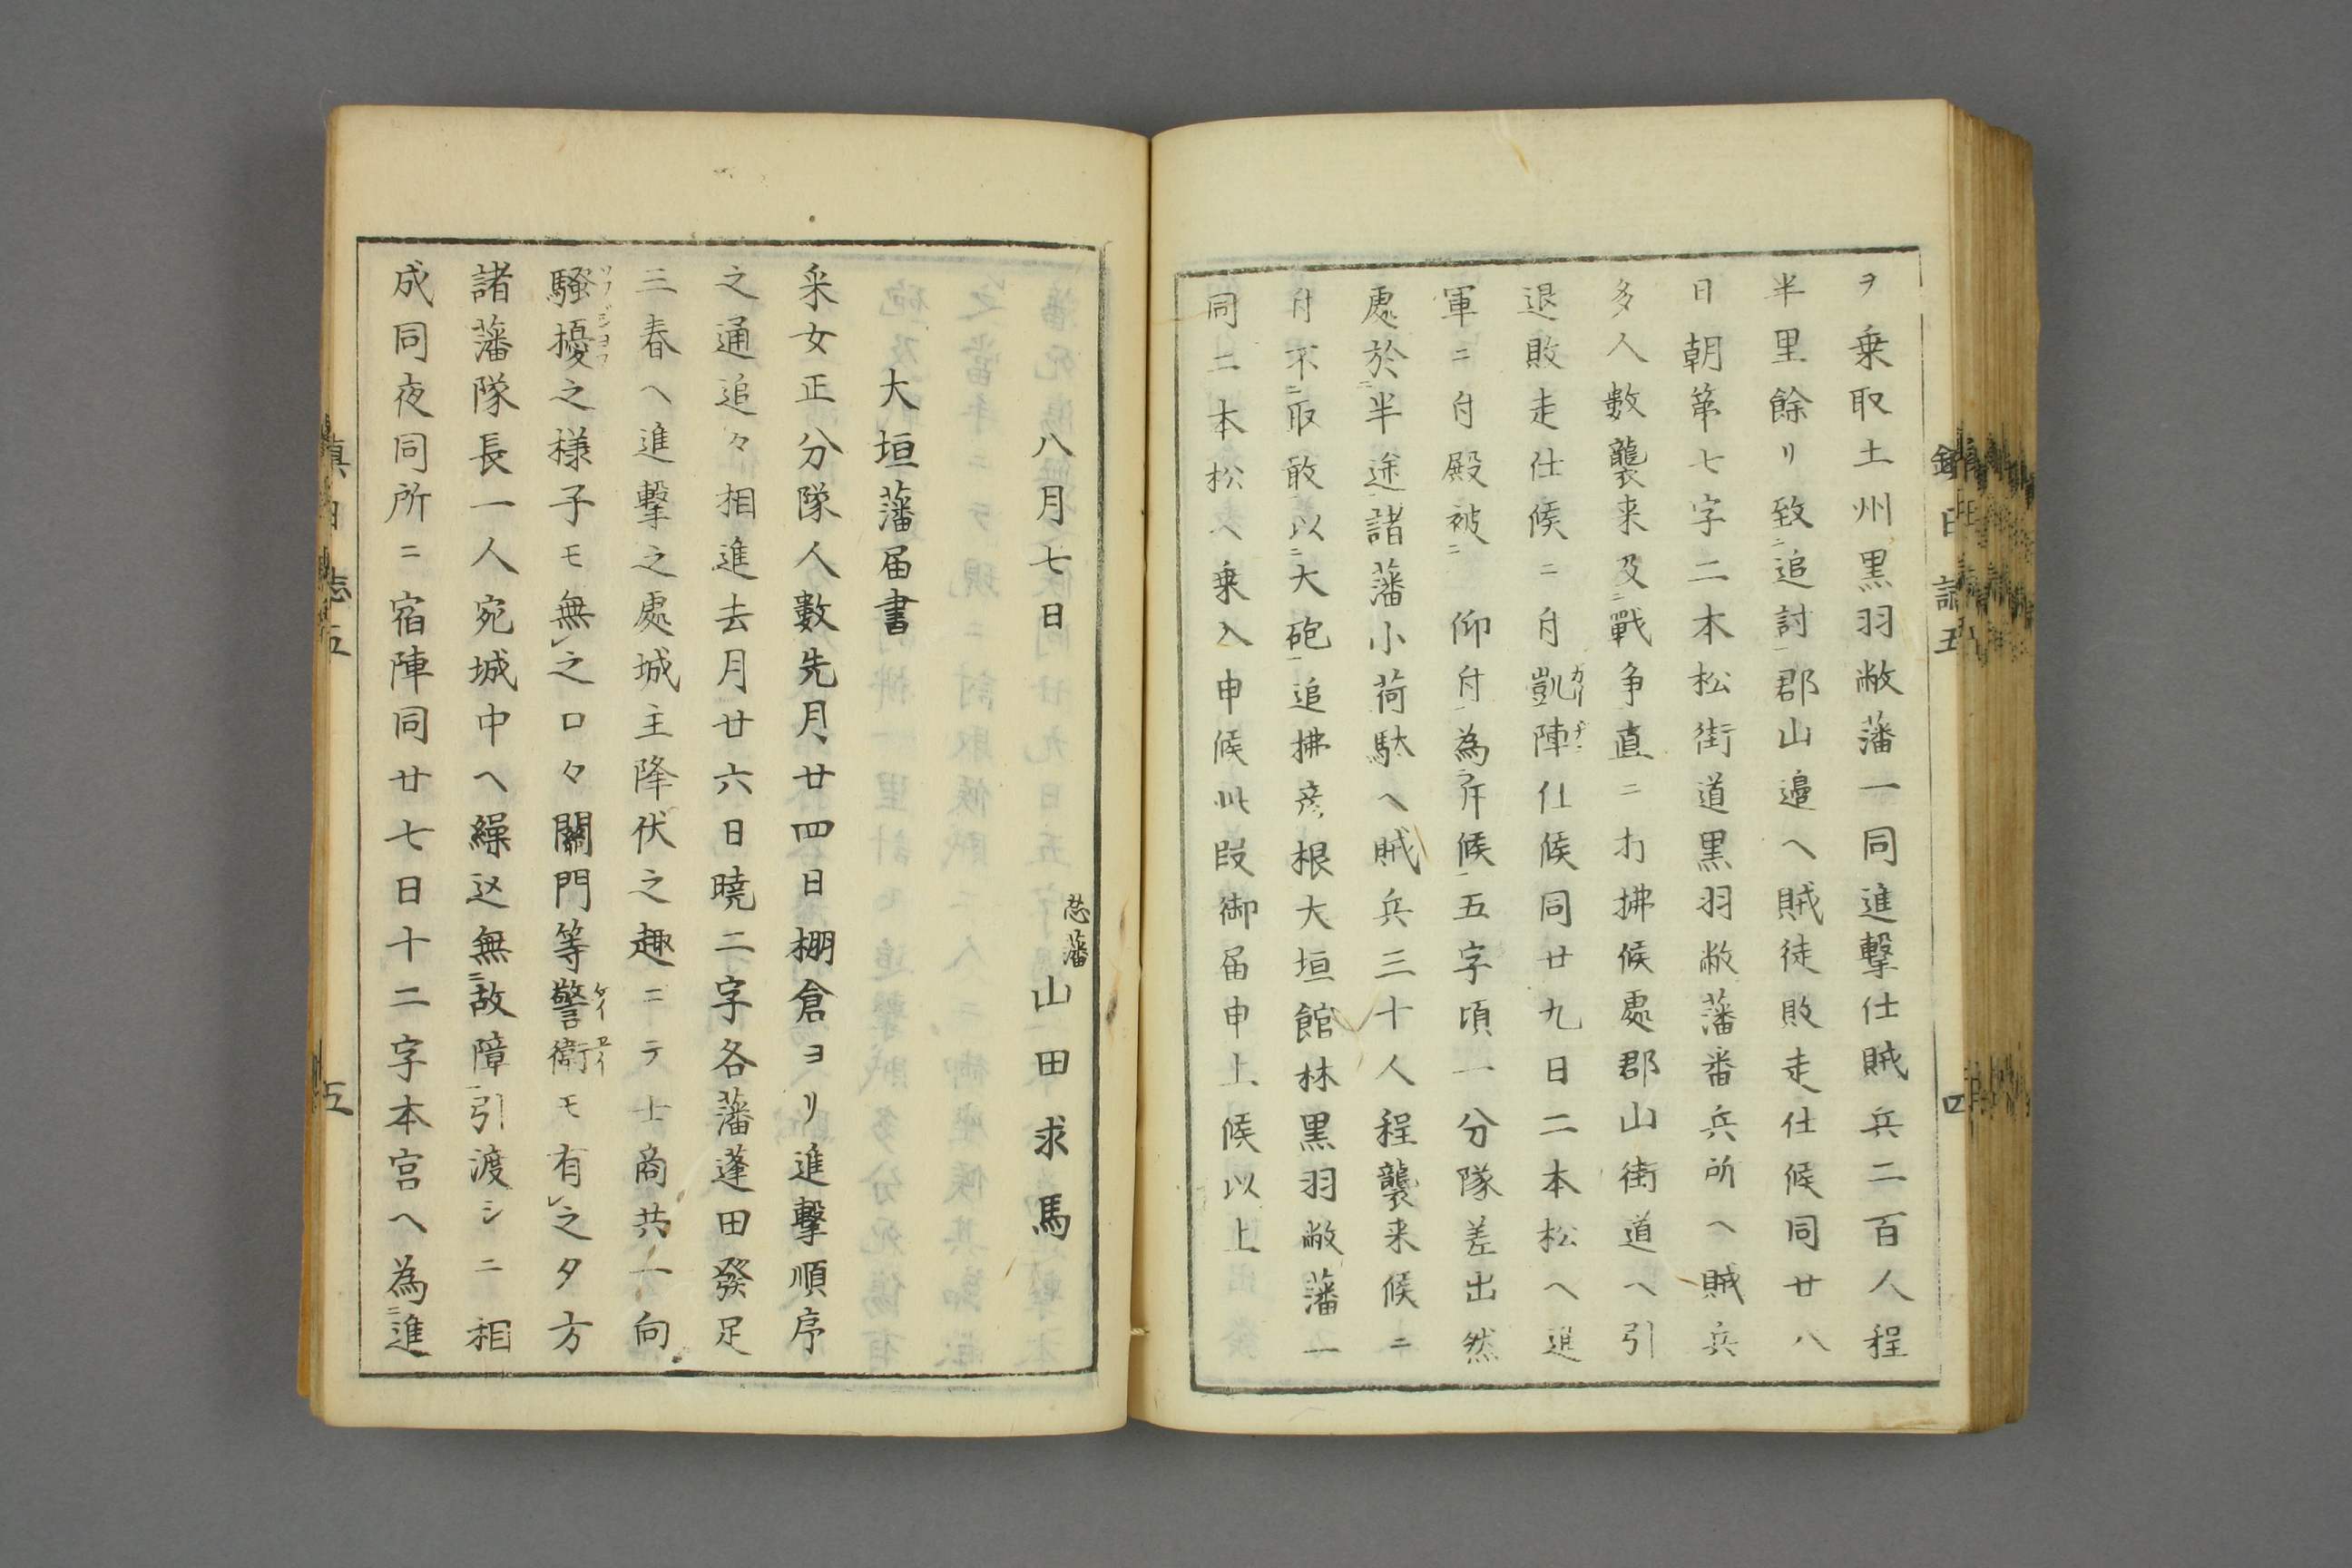 ヲ乗取土州黒羽敝藩一同進撃仕賊兵二百人程
半里餘リ致ニ追討一郡山邉ヘ賊徒敗走仕候同廿八
日朝第七字二本松街道黒羽敝藩番兵所ヘ賊兵
多人數襲来及ニ戰争直ニ打拂候處郡山街道ヘ引
退敗走仕候ニ付凱陣仕候同廿九日二本松ヘ進
軍ニ付殿被ニ 仰付一為ニ斥候一五字頃一分隊差出然
處於ニ半途一諸藩小荷駄ヘ賊兵三十人程襲来候ニ
付不ニ取敢一以ニ大砲一追拂彦根大垣館林黒羽敝藩一
同二本松ヘ乗入申候此段御届申上候以上
八月七日
忍藩 山田求馬
大垣藩届書
采女正分隊人數先月廿四日棚倉ヨリ進撃順序
之通追々相進去月廿六日曉二字各藩蓬田發足
三春ヘ進撃之處城主降伏之趣ニテ士商共一向
騒擾之様子モ無レ之口々關門等警衛モ有レ之夕方
諸藩隊長一人宛城中ヘ繰込無ニ故障一引渡シニ相
成同夜同所ニ宿陣同廿七日十二字本宮ヘ為ニ進
鎮日誌五
四
鎮日誌五
五